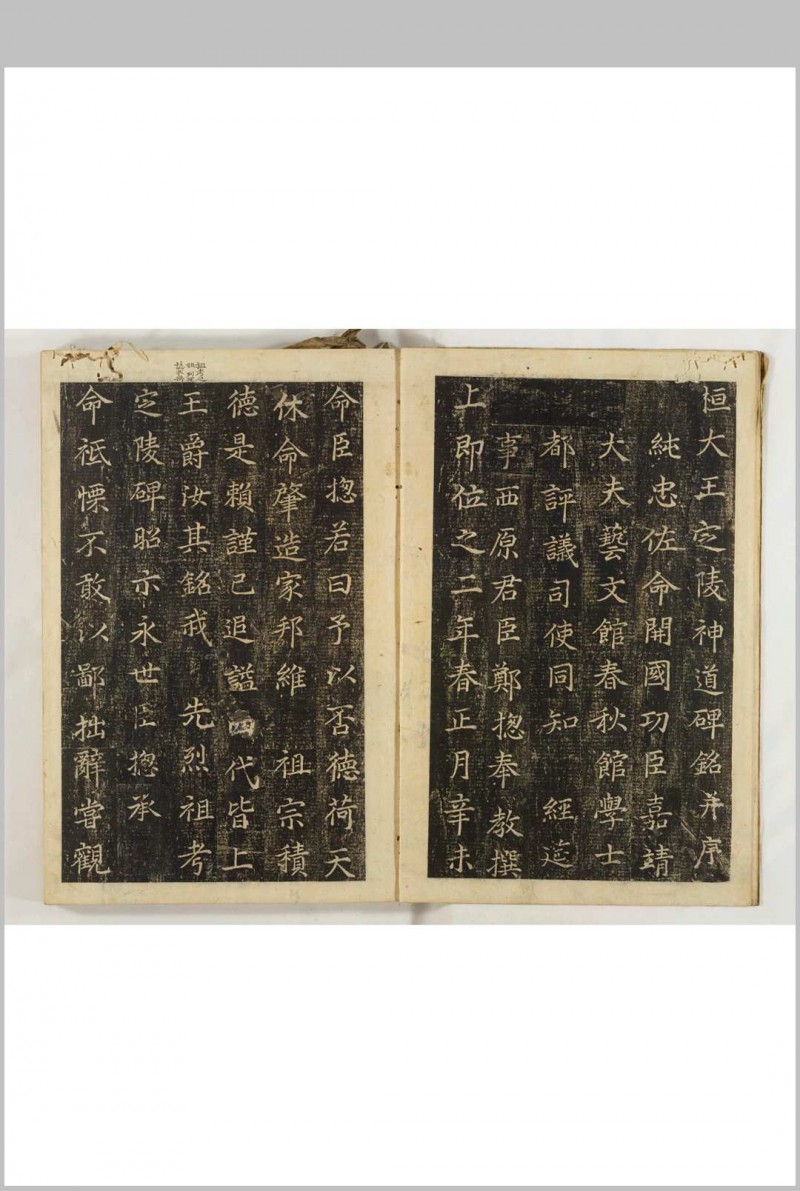 桓大王定陵神道碑銘并序
純忠佐命開國功臣嘉靖
大夫藝文館春秋館學士
都評議司使同知 經筵
事西原君臣鄭揔奉 教撰
上即位之二年春正月辛未
命臣揔若曰予以否德荷天
休命肇造家邦維 祖宗積
德是賴謹已追謚四代皆上
王爵汝其銘我 先烈祖考
定陵碑昭示永世臣揔承
命祗慄不敢以鄙拙辭嘗觀